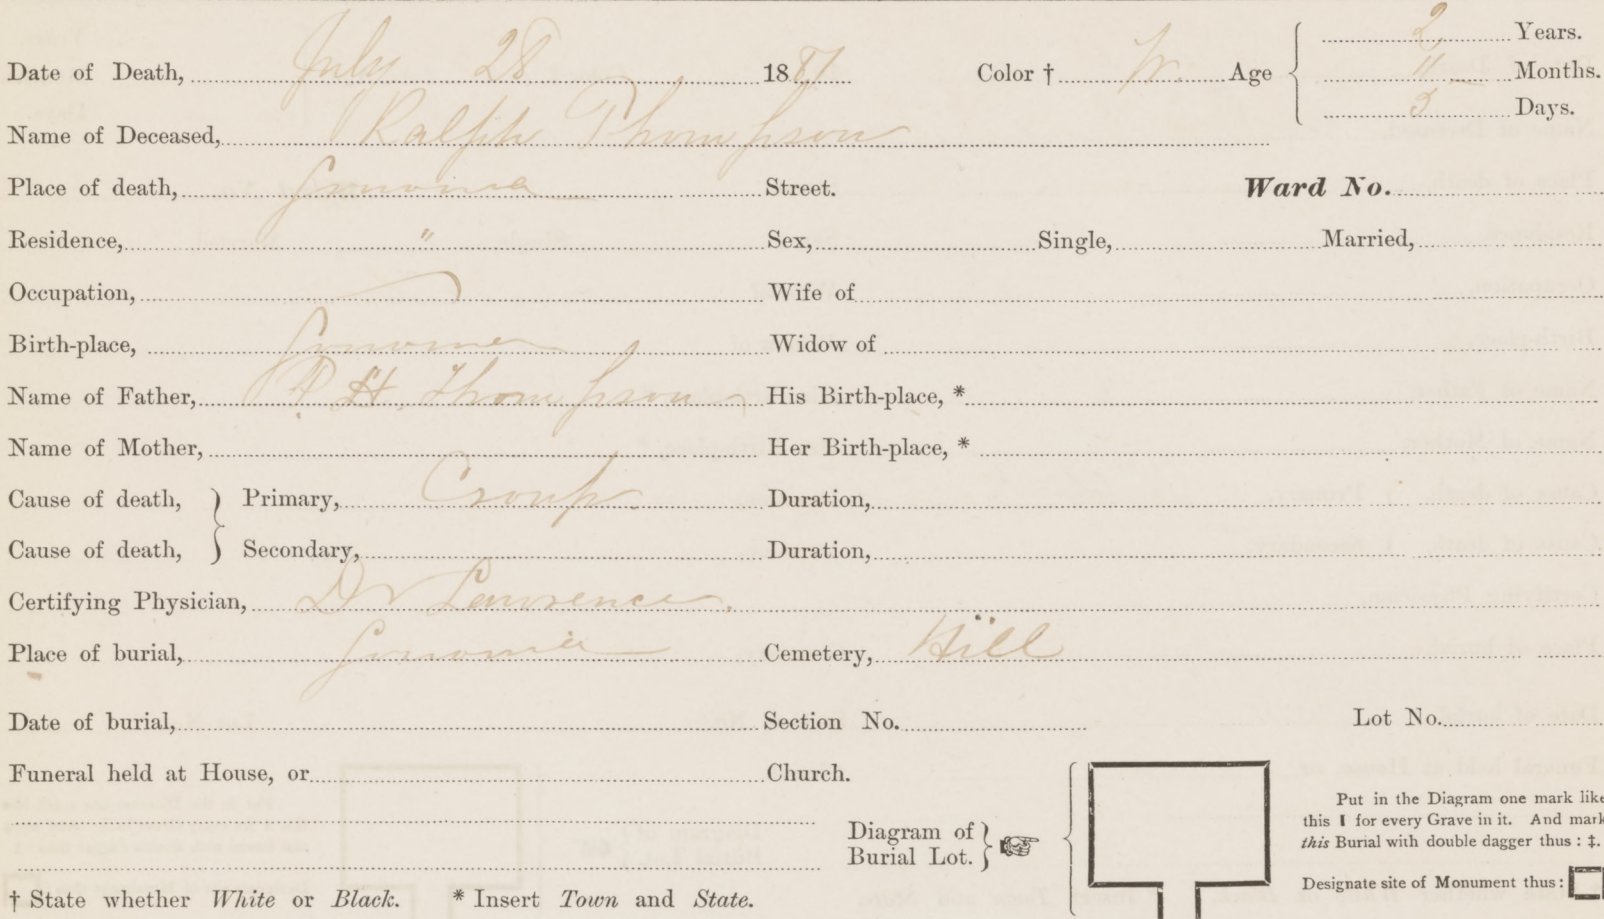 Date of Death, July 28 1881 Color † W. Age 2 Years.
11 Months.
3 Days.
Name of Deceased, Ralph Thompson
Place of death, Sonoma Street. Ward No.
Residence, " Sex, Single, Married,
Occupation, Wife of
Birth-place, Sonoma Widow of
Name of Father, R. H. Thompson His Birth-place, *
Name of Mother, Her Birth-place, *
Cause of death, } Primary, Croup Duration,
Cause of death, } Secondary, Duration,
Certifying Physician, Dr Lawrence.
Place of burial, Sonoma Cemetery, Hill
Date of burial, Section No. Lot No.
Funeral held at House, or Church.
Diagram of
Burial Lot. }
Put in the Diagram one mark like
this I for every Grave in it. And mark
this Burial with double dagger thus : ‡.
Designate site of Monument thus :
† State whether White or Black. * Insert Town and State.